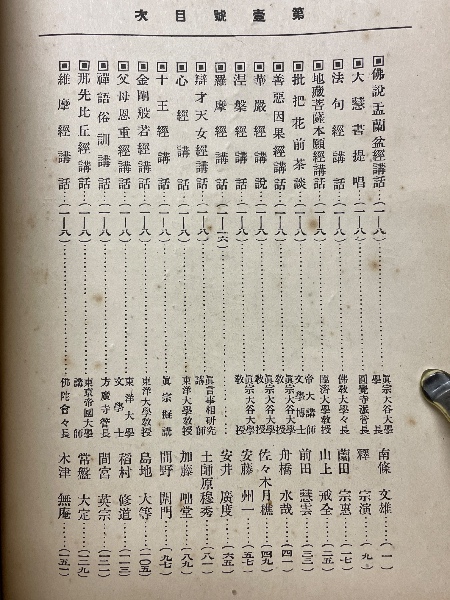 第壹號目次
佛說盂蘭盆經講話…(一—八)…眞宗大谷大學長 南條文雄…(一)
大慧書提唱…(一—八)…圓覺寺派管長 釋宗演…(九)
法句經講話…(一—八)…佛敎大學々長 薗田宗惠…(一七)
地藏菩薩本願經講話…(一—八)…臨濟大學敎授 山上戒全…(二五)
批把花前茶談…(一—八)…帝大講師文學博士 前田慧雲…(三三)
善惡因果經講話…(一—八)…眞宗大谷大學敎授 舟橋水哉…(四一)
華嚴經講說…(一—八)…眞宗大谷大學敎授 佐々木月樵…(四九)
涅槃經講話…(一—八)…眞宗大谷大學敎授 安藤州一…(五七)
羅摩經講話…(一—一六)… 安井廣度…(六五)
辯才天女經講話…(一—八)…眞言事相研究講師 土師原穆秀…(八一)
心經講話…(一—八)…東洋大學敎授 加藤咄堂…(八九)
十王經講話…(一—八)…眞宗擬講 間野闡門…(九七)
金剛般若經講話…(一—八)…東洋大學敎授 島地大等…(一〇五)
父母恩重經講話…(一—八)…東洋大學文學士 稻村修道…(一一三)
禪語俗訓講話…(一—八)…方廣寺管長 間宮英宗…(一二一)
那先比丘經講話…(一—八)…東京帝國大學講師 常盤大定…(一二九)
維摩經講話…(一—八)…佛陀會々長 木津無庵…(一五一)